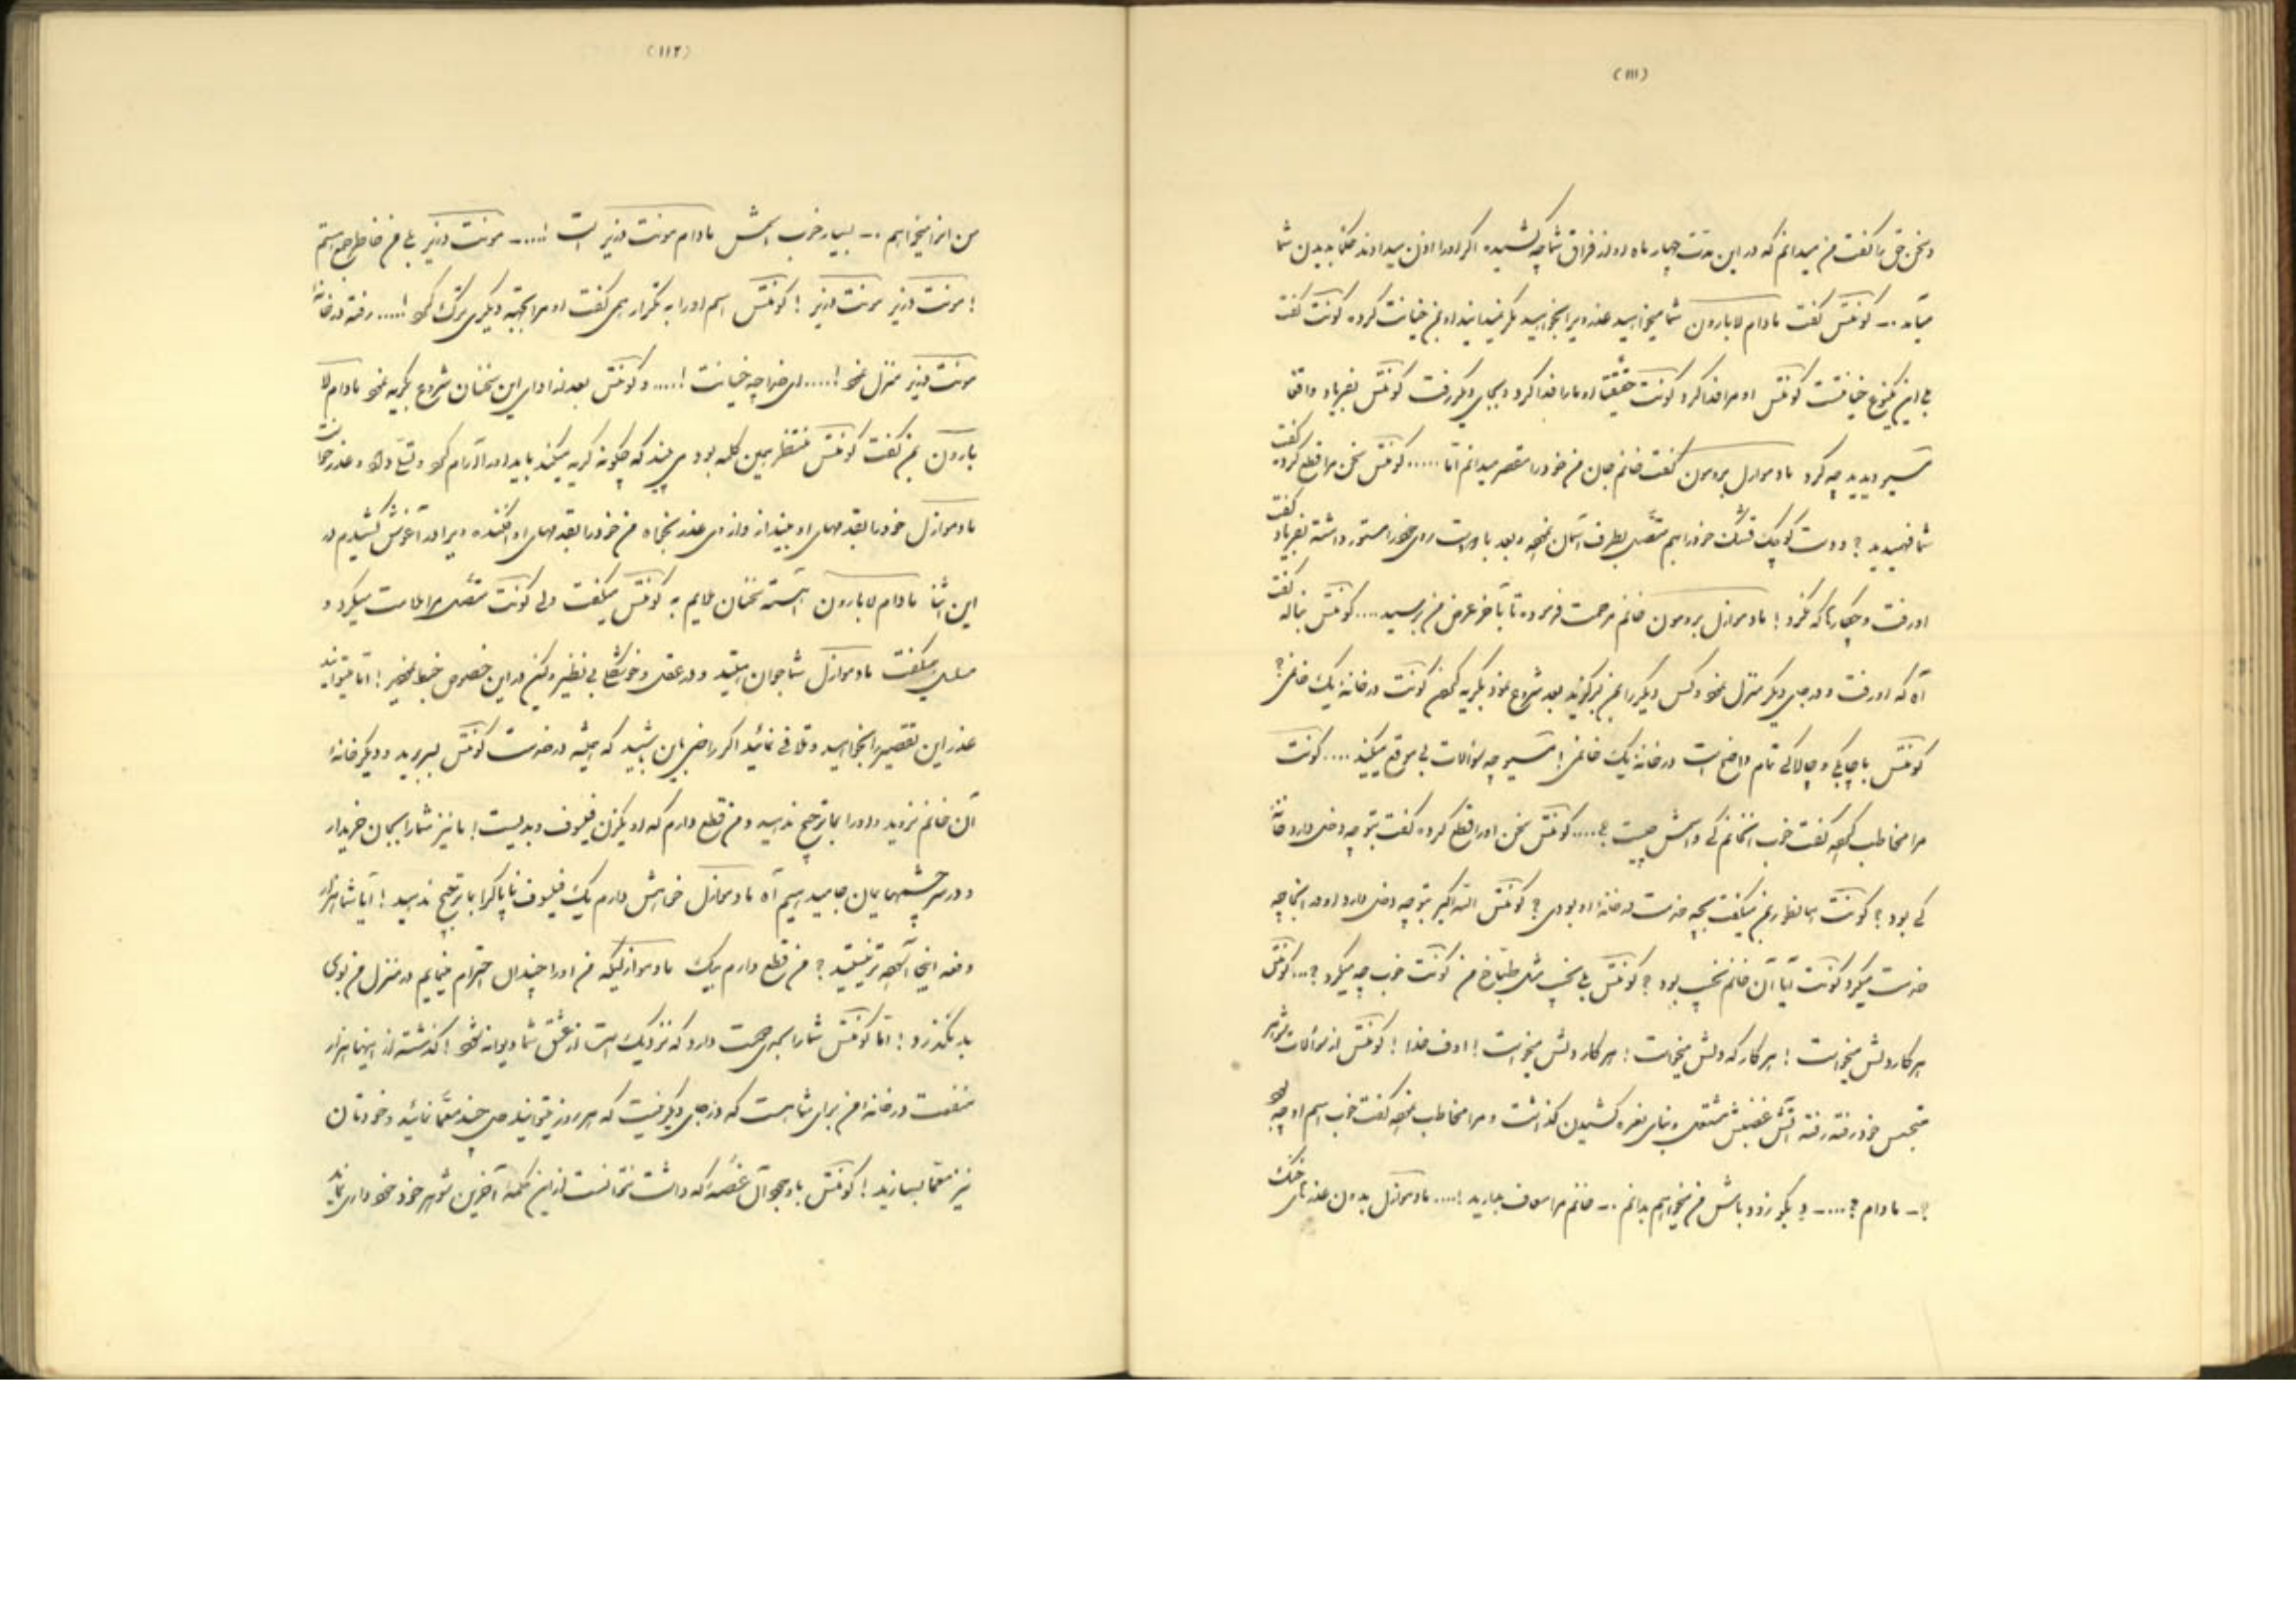 (۱۱۱)
و سخن حق را گفت من میدانم که در این مدت چهار ماه او از فراق شما چه کشیده اگر او را اذن میدادند حکما بدیدن شما
میآمد .- کونتس گفت مادام لابارون شما میخواهید عذر ویرا بخواهید مگر نمیدانید او بمن خیانت کرده کونت گفت
بچه نوع خیانت کونتس او مرا فدا کرد کونت حقیقتا او ما را فدا کرد و بجای دیگر رفت کونتس بفریاد واقعا
مسیو دیدید چه کرد مادموازل برومون گفت خانم جان من خود را مقصر میدانم اما ..... کونتس سخن مرا قطع کرده گفت
شما فهمیدید ؟ دو دست کوچک قشنگ خود را هم متصل بطرف آسمان نموده و بعد با دو دست روی خود را مستور داشته بفریاد گفت
او رفت و چه کارها که نکرد ! مادموازل برومون خانم مرحمت فرموده تا بآخر عرض من برسید .... کونتس بناله گفت
آه که او رفت و در جای دیگر منزل نمود و کس دیگر را بمن برگزید بعد شروع نمود بگریه کردن کونت در خانه یک خانمی ؟
کونتس با چابکی و چالاکی تمام واضح است در خانه یک خانمی ! مسیو چه سؤالات بی موقع میکنید .... کونت
مرا مخاطب کرده گفت خوب آنخانم کی و اسمش چیست ؟ .... کونتس سخن او را قطع کرده گفت بتو چه دخلی دارد خانه
کی بود ؟ کونت همانطور بمن میگفت بچه خدمت در خانه او بودی ؟ کونتس الله اکبر بتو چه دخلی دارد او در آنجا چه
خدمت میکرد کونت آیا آن خانم نجیب بود ؟ کونتس بلی نجیب مثل طباخ من کونت خوب چه میکرد ؟ ... کونتس
هر کار دلش میخواست ! هر کار که دلش میخواست ! هر کار دلش میخواست ! اوف خدا ! کونتس از سؤالات شوهر
متجسس خود رفته رفته آتش غضبش مشتعل و بنای نعره کشیدن گذاشت و مرا مخاطب نموده گفت خوب اسم او چه بود
؟ - مادام ؟ .... - بگو زود باش من میخواهم بدانم .- خانم مرا معاف بدارید ! .... مادموازل بدون عذرهای خنک
(۱۱۲)
من اینرا میخواهم .- بسیار خوب اسمش مادام مونت دنیز است !....- مونت دنیز بلی من خاطر جمع هستم
! مونت دنیز مونت دنیز ! کونتس اسم او را به تکرار همی گفت او مرا بجهة دیگری ترک کرد !..... رفته در خانه
مونت دنیز منزل نمود !.... ای خدا چه خیانت !.... و کونتس بعد از ادای این سخنان شروع بگریه نمود مادام لا
بارون بمن گفت کونتس منتظر همین کلمه بود می بیند که چگونه گریه میکند باید او را آرام کرد و تسلی داد و عذر خواست
مادموازل خود را بقدمهای او بینداز و از وی عذر بخواه من خود را بقدمهای او افکنده ویرا در آغوش کشیدم در
این اثنا مادام لابارون آهسته سخنان ملایم به کونتس میگفت ولی کونت متصل مرا ملامت میکرد و
میگفت مادموازل شما جوان هستید و در عقل و خوشگلی بی نظیر ولکن در این خصوص خبط نمودید ! اما میتوانید
عذر این تقصیر را بخواهید و تلافی نمائید اگر راضی باین بشوید که همیشه در خدمت کونتس بسر برید و دیگر خانه
آن خانم نروید و او را بما ترجیح ندهید و من قطع دارم که او یکزن فیلسوف و بدیست ! ما نیز شما را بجان خریدار
و در سر چشمهایمان جا میدهیم آه مادموازل خواهش دارم یک فیلسوف ناپاک را بما ترجیح ندهید ! آیا شما هزار
دفعه اینجا آسوده تر نیستید ؟ من قطع دارم بیک مادموازلیکه من او را چندان احترام مینمایم در منزل من بوی
بد نگذرد ! اما کونتس شما را بحدی دوست دارد که نزدیک است از عشق شما دیوانه شود ! گذشته از اینها هزار
منفعت در خانه من برای شما هست که در جای دیگر نیست که هر روز میتوانید حل چند معما نمائید و خودتان
نیز معما بسازید ! کونتس با وجود آن غصه که داشت نتوانست از این کلمه آخرین شوهر خود خودداری نماید